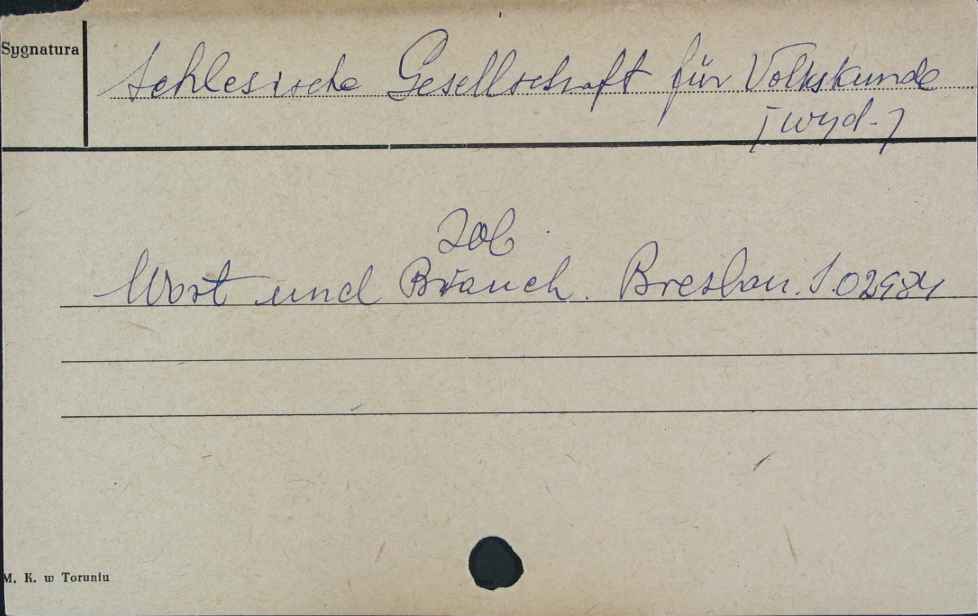 Sygnatura
Schlesische Gesellschaft für Volkskunde
[wyd.]
zob.
Wort und Brauch. Breslau. S.02984
M. K. w Toruniu